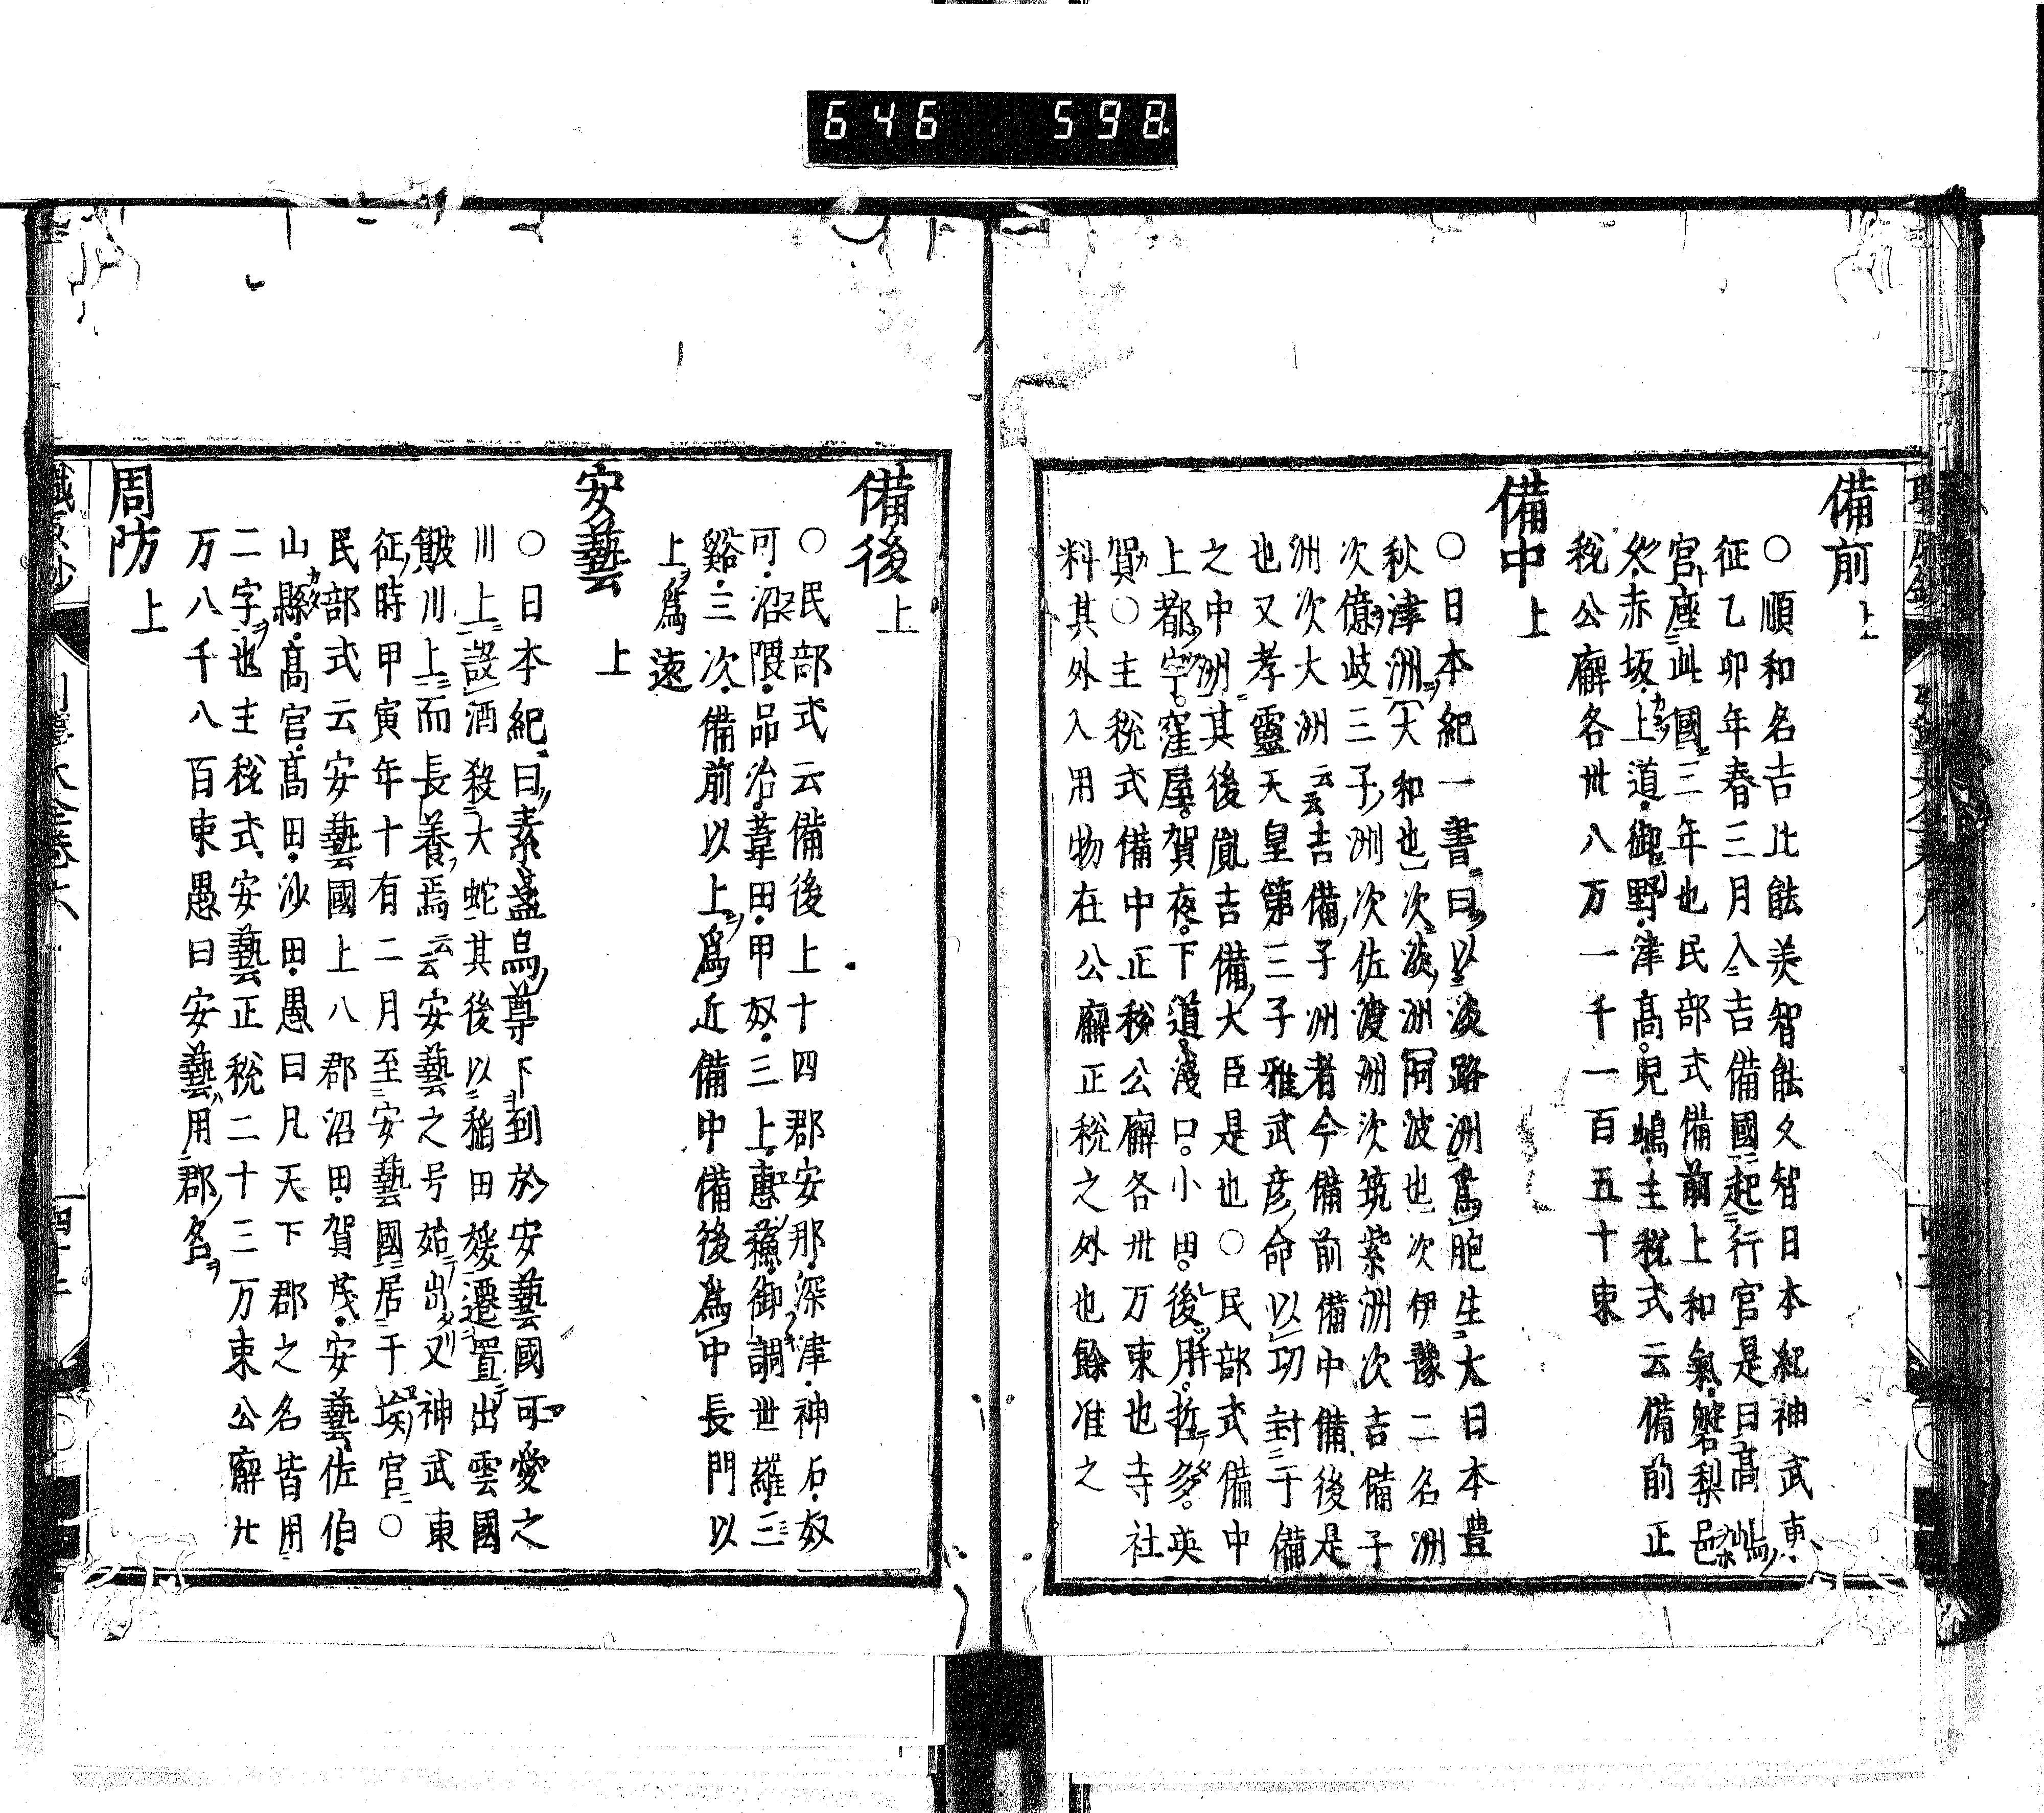 646 598
備前 上
〇順和名吉比能美智能久智日本紀神武東
征乙卯年春三月入吉備國起行宮是曰高嶋
宮座此國三年也民部式備前上和氣磐梨邑
久赤坂上道御野津高兒嶋主税式云備前正
税公廨各卅八万一千一百五十束
備中 上
〇日本紀一書曰以淡路洲爲胞生大日本豊
秋津洲大和也次淡洲阿波也次伊豫二名洲
次億岐三子洲次佐渡洲次筑紫洲次吉備子
洲次大洲云云吉備子洲者今備前備中備後是
也又孝靈天皇第三子雅武彦命以功封于備
之中洲其後胤吉備大臣是也〇民部式備中
上都宇窪屋賀夜下道淺口小田後月哲多英
賀〇主税式備中正税公廨各卅万束也寺社
料其外入用物在公廨正税之外也餘准之
備後 上
〇民部式云備後上十四郡安那深津神石奴
可沼隈品治葦田甲奴三上惠蘇御調世羅三
谿三次備前以上爲近備中備後爲中長門以
上爲遠
安藝 上
〇日本紀曰素盞烏尊下到於安藝國可愛之
川上設酒殺大蛇其後以稲田媛遷置出雲國
簸川上而長養焉云云安藝之号始出又神武東
征時甲寅年十有二月至安藝國居于埃宮〇
民部式云安藝國上八郡沼田賀茂安藝佐伯
山縣高宮高田沙田愚曰凡天下郡之名皆用
二字也主税式安藝正税二十三万束公廨廿
万八千八百束愚曰安藝用郡名
周防 上